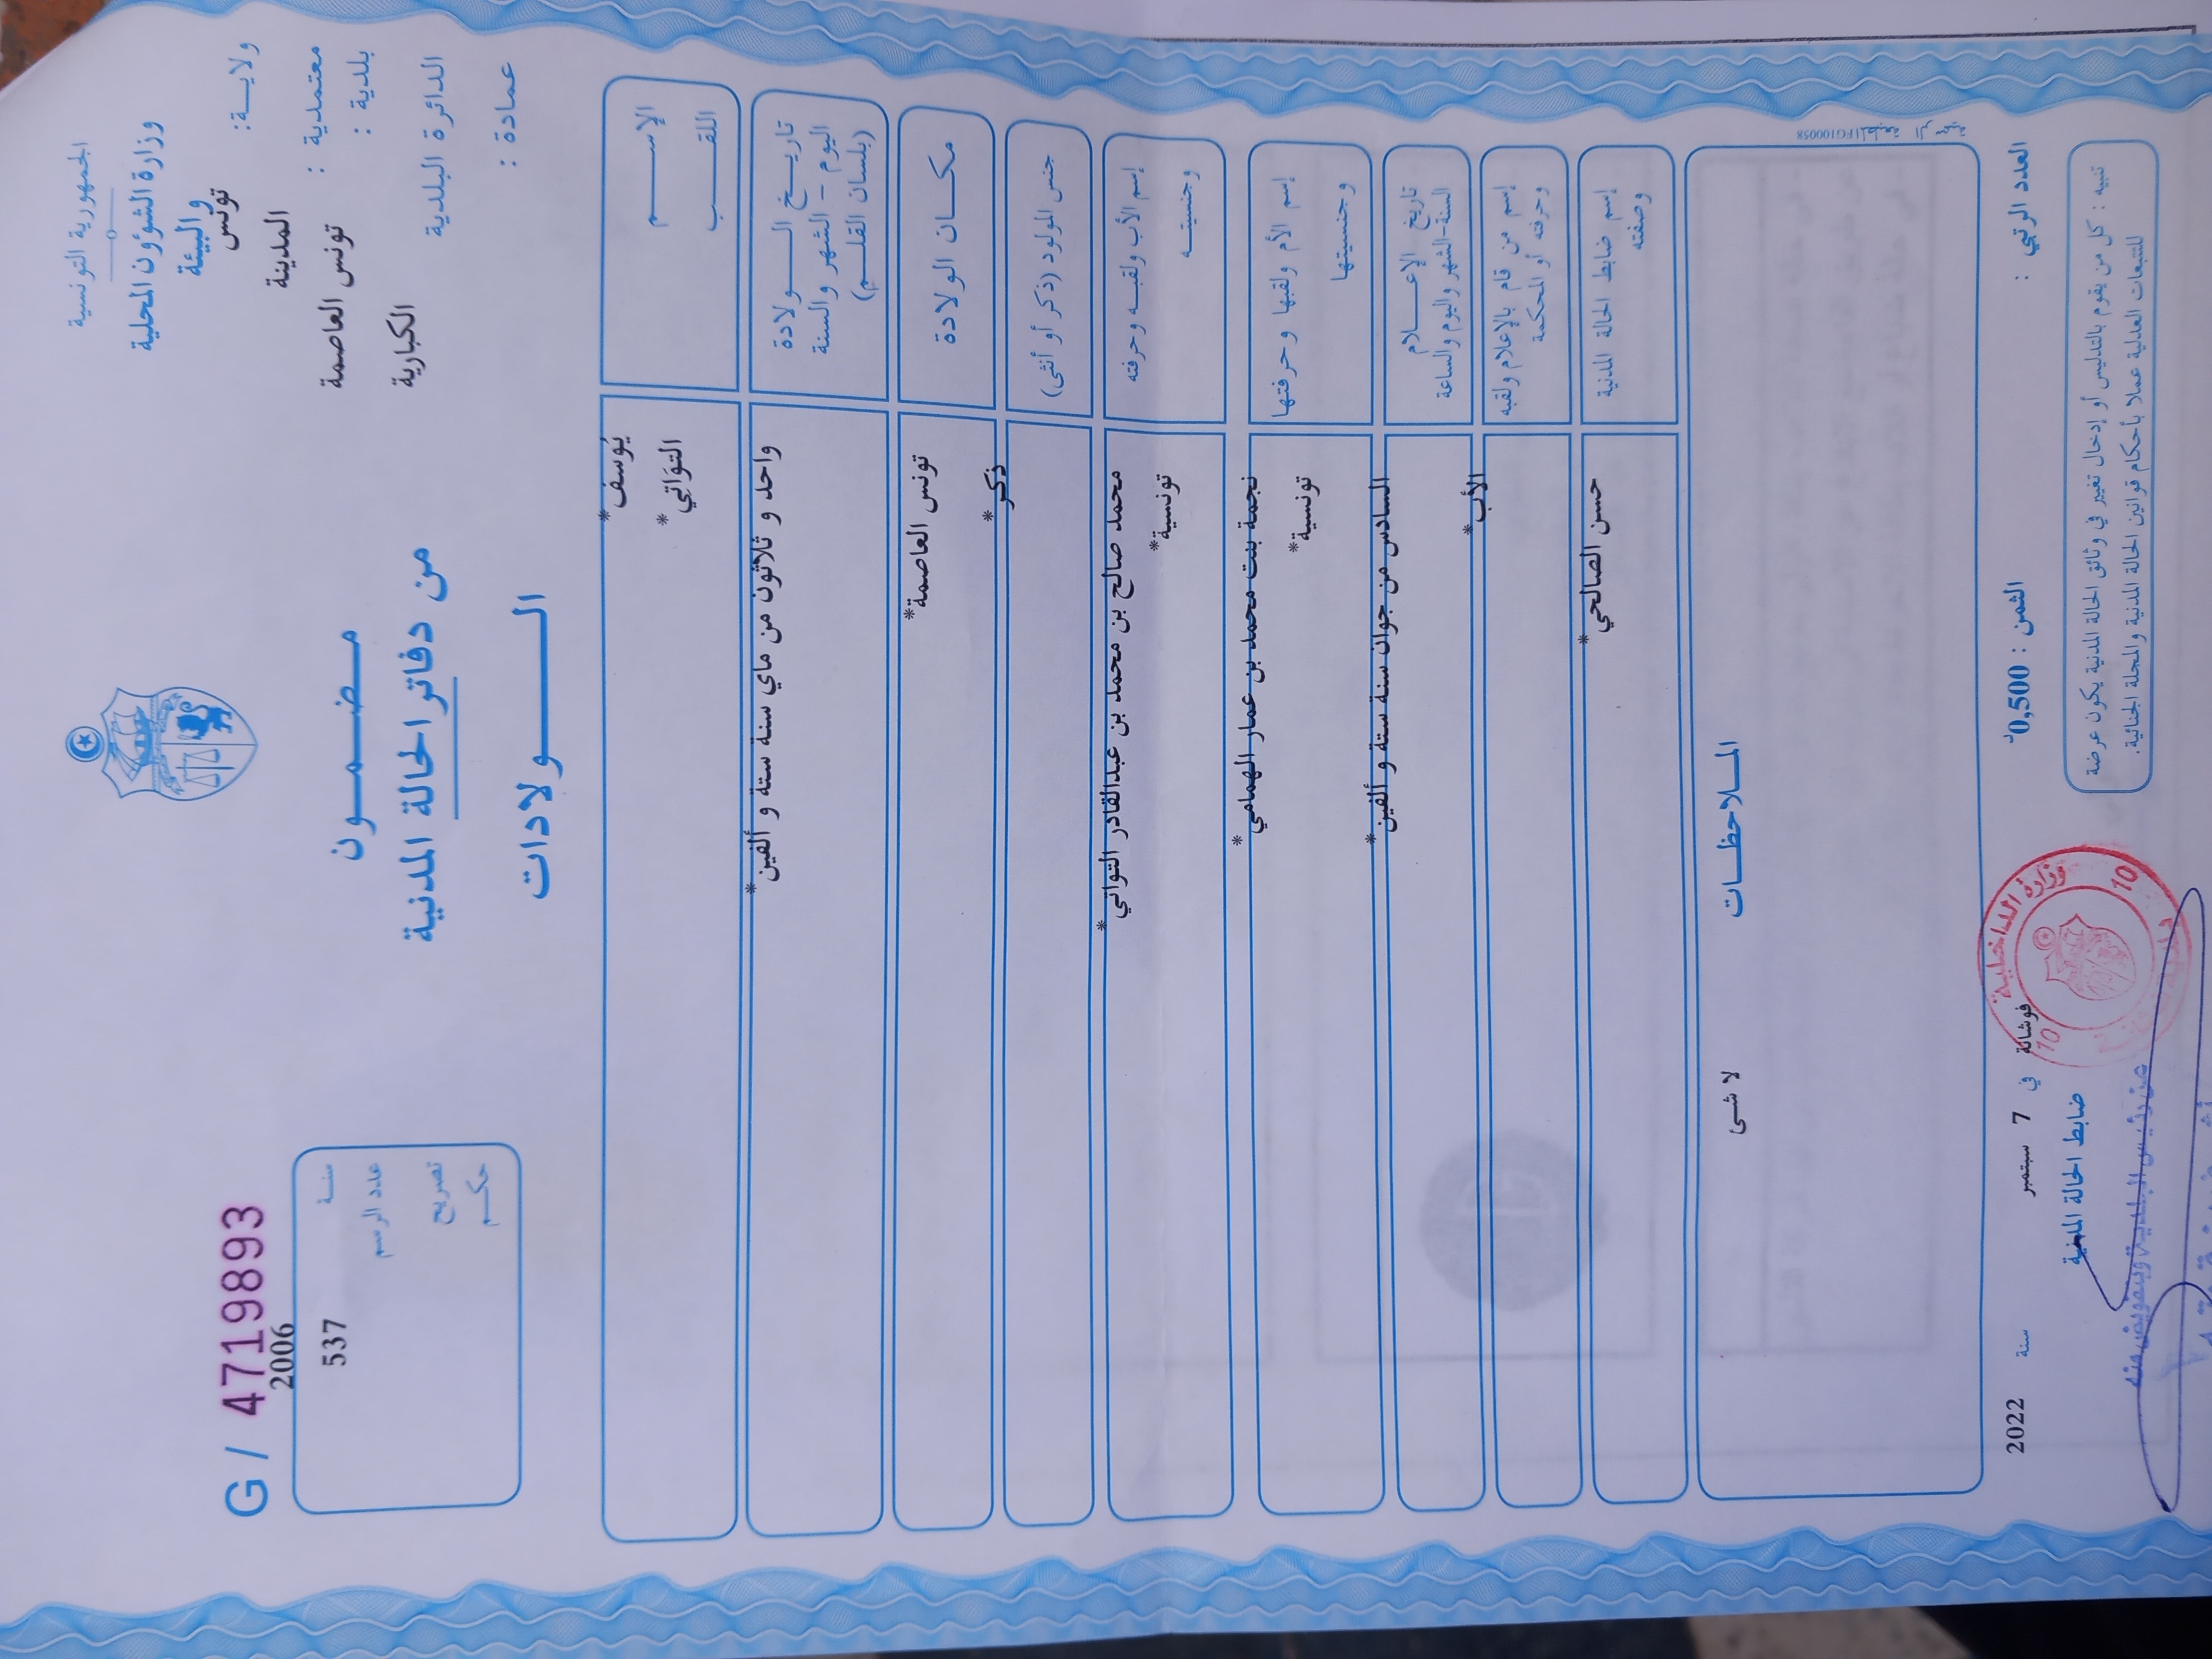 الجمهورية التونسية
وزارة الشؤون المحلية
والبيئة
ولاية: تونس
معتمدية : المدينة
بلدية : تونس العاصمة
الدائرة البلدية الكبارية
عمادة :
مضمون
من دفاتر الحالة المدنية
الولادات
G / 4719893
سنة 2006
عدد الرسم 537
تصريح
حكم
الإسم يُوسف*
اللقب التوَاتِي*
تاريخ الولادة
اليوم - الشهر والسنة
(بلسان القلم)
واحد و ثلاثون من ماي سنة ستة و ألفين*
مكان الولادة تونس العاصمة*
جنس المولود (ذكر أو أنثى) ذكر*
إسم الأب ولقبه وحرفته محمد صالح بن محمد بن عبدالقادر التواتي*
وجنسيته تونسية*
إسم الأم ولقبها وحرفتها نجمة بنت محمد بن عمار الهمامي*
وجنسيتها تونسية*
تاريخ الإعلام
السنة-الشهر واليوم والساعة
السادس من جوان سنة ستة و ألفين*
إسم من قام بالإعلام ولقبه
وحرفته أو المحكمة
الأب*
إسم ضابط الحالة المدنية
وصفته
حسن الصالحي*
الملاحظات
لا شىء
المطبعة الرسمية FG100058
العدد الرتبي :
الثمن : 0,500د
فوشانة في 7 سبتمبر سنة 2022
ضابط الحالة المدنية
تنبيه : كل من يقوم بالتدليس أو إدخال تغيير في وثائق الحالة المدنية يكون عرضة
للتتبعات العدلية عملا بأحكام قوانين الحالة المدنية والمجلة الجنائية.
وزارة الداخلية
10
10
عن رئيس البلدية وبتفويض منه